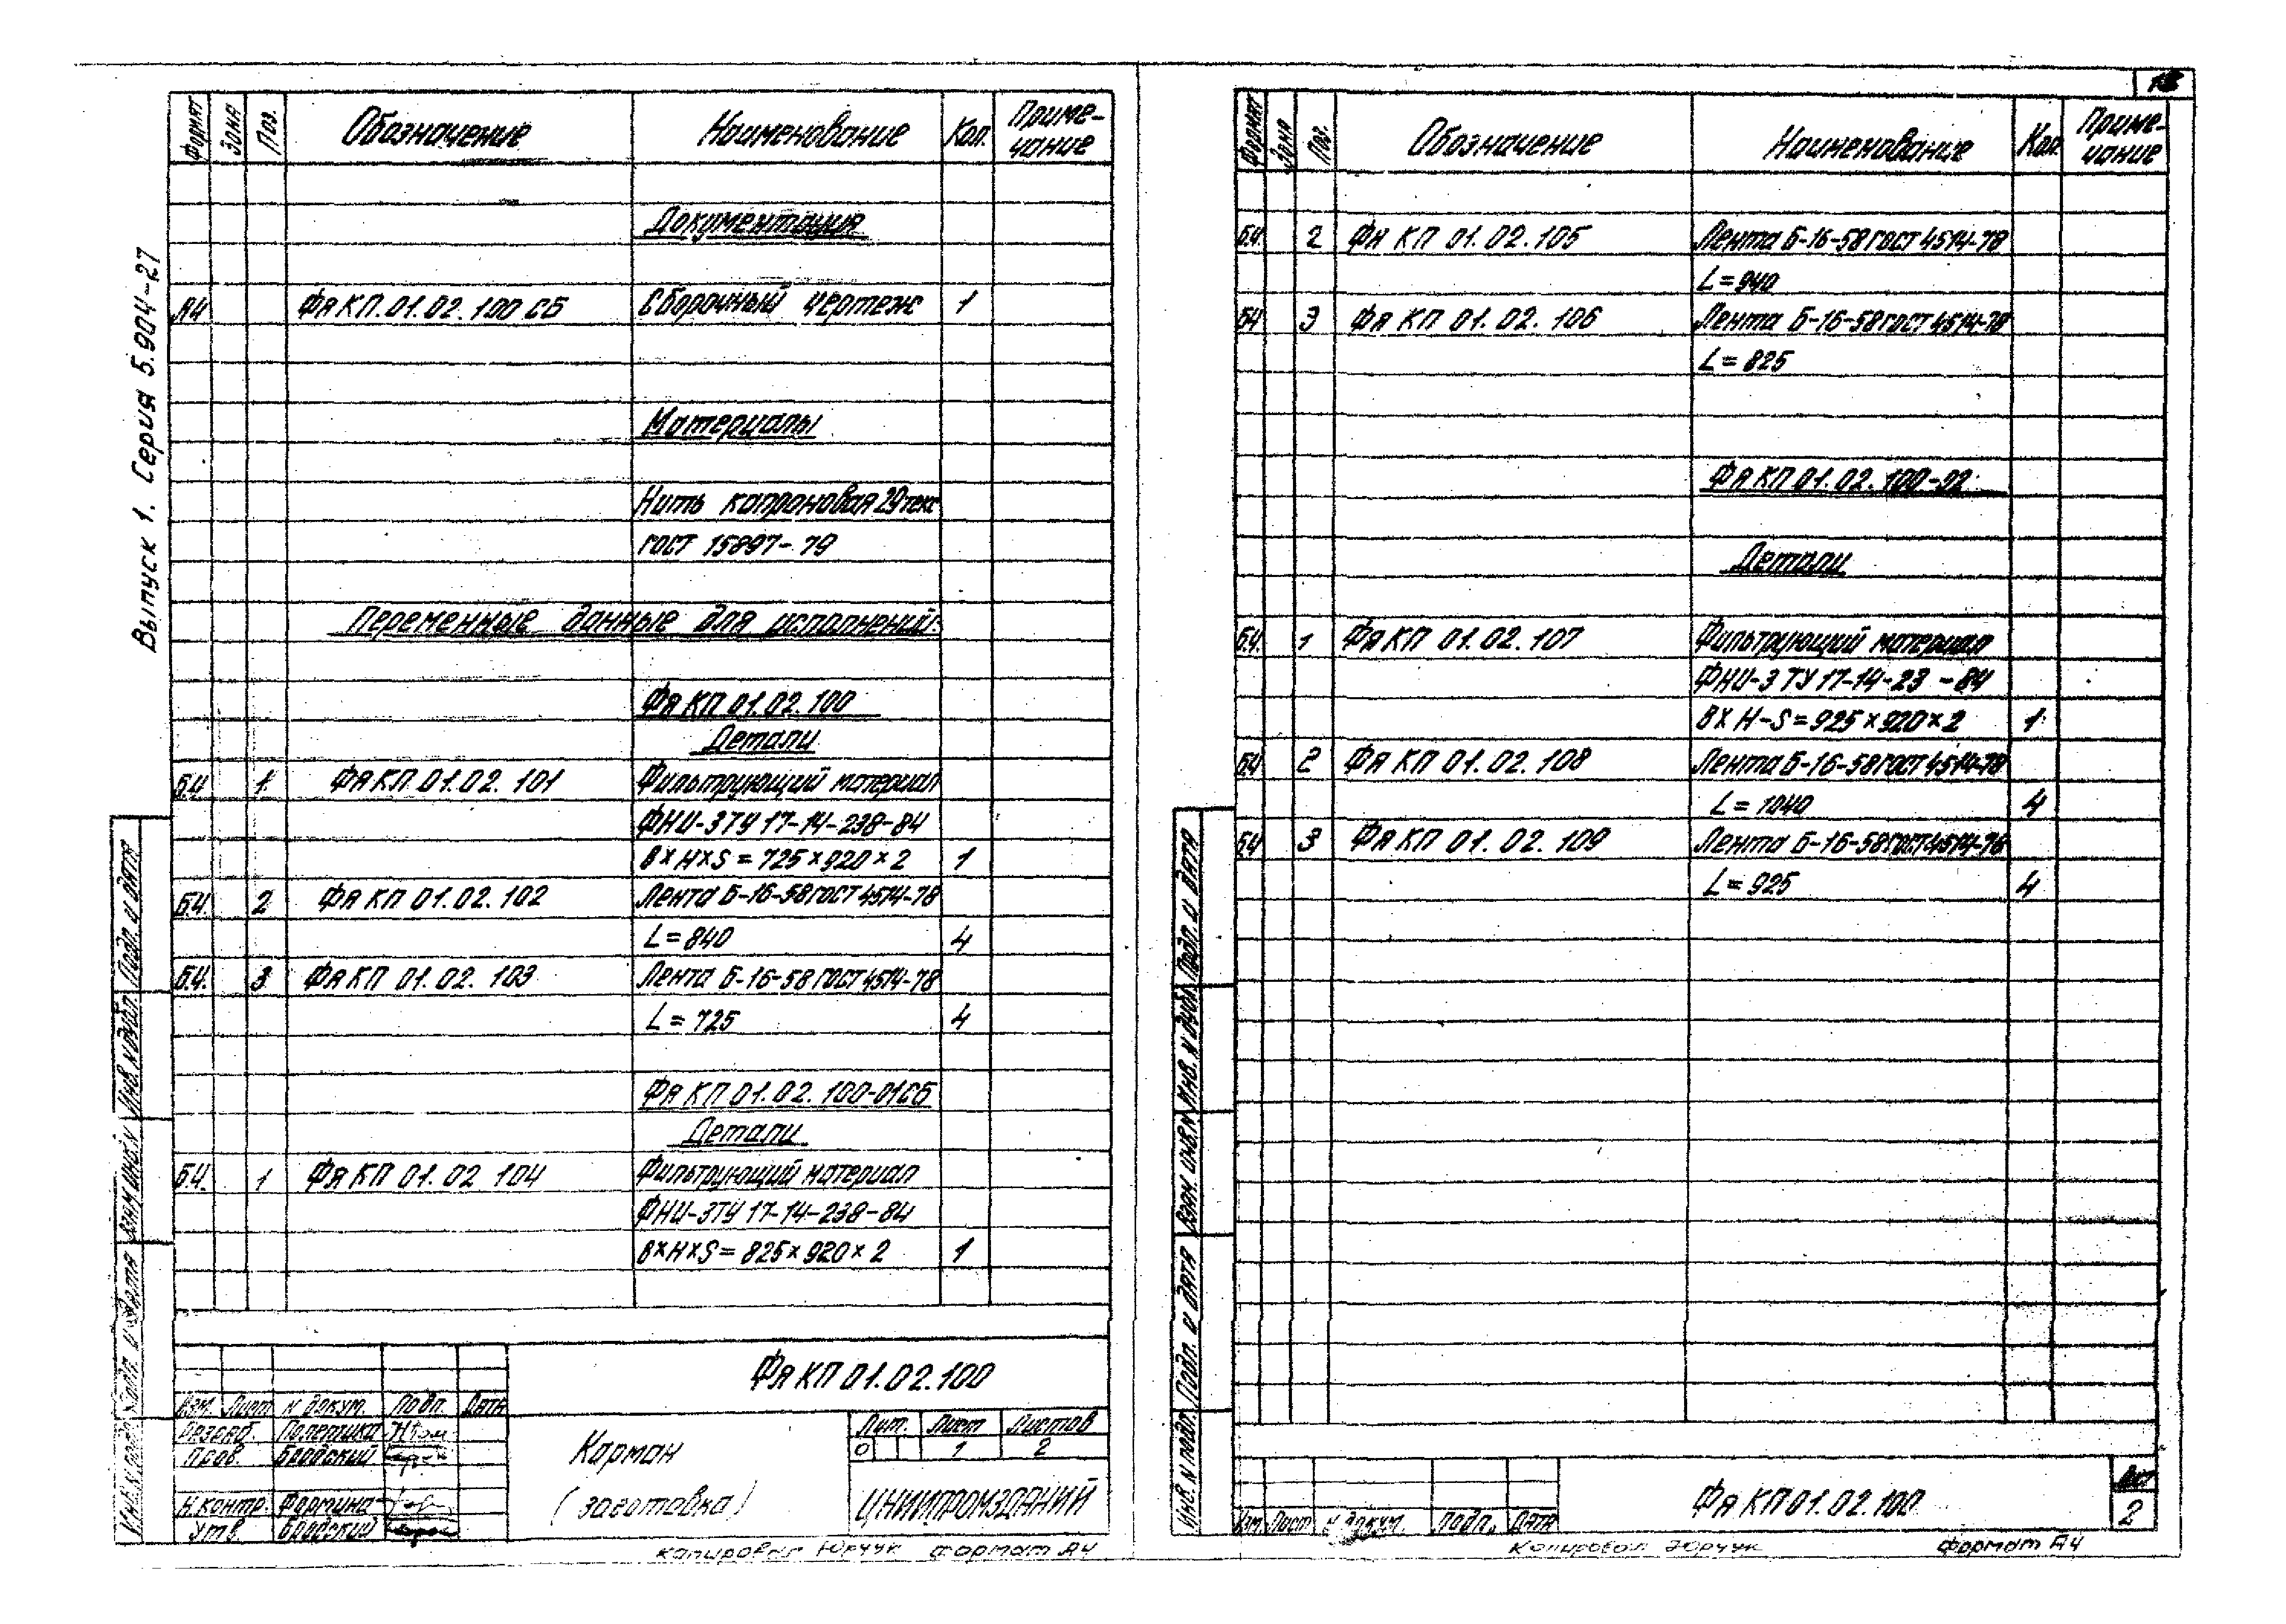 Выпуск 1. Серия 5.904-27
Формат Зона Поз. Обозначение Наименование Кол. Приме-
чание
Документация
А4 ФяКП.01.02.100 СБ Сборочный чертеж 1
Материалы
Нить капроновая 29текс
ГОСТ 15897-79
Переменные данные для исполнений:
ФяКП 01.02.100
Детали
Б.Ч 1. ФяКП 01.02.101 Фильтрующий материал
ФНИ-3ТУ 17-14-238-84
В×Н×S = 725×920×2 1
Б.Ч. 2 ФяКП 01.02.102 Лента Б-16-58 ГОСТ 4514-78
L = 840 4
Б.Ч. 3 ФяКП 01.02.103 Лента Б-16-58 ГОСТ 4514-78
L = 725 4
ФяКП 01.02.100-01СБ
Детали
Б.Ч. 1 ФяКП 01.02 104 Фильтрующий материал
ФНИ-3ТУ 17-14-238-84
В×Н×S = 825×920×2 1
ФяКП 01.02.100
Изм. Лист N докум. Подп. Дата
Разраб. Полетика
Пров. Бродский
Н.контр. Фомина
Утв. Бродский
Карман
(заготовка)
Лит. Лист Листов
О 1 2
ЦНИИПРОМЗДАНИЙ
Инв. N подл. Подп. и дата Взам.инв.N Инв.N дубл. Подп. и дата
Копировал Юрчук Формат А4
Формат Зона Поз. Обозначение Наименование Кол. Приме-
чание
Б.Ч. 2 ФяКП 01.02.105 Лента Б-16-58 ГОСТ 4514-78
L = 940
БЧ 3 ФяКП 01.02.106 Лента Б-16-58 ГОСТ 4514-78
L = 825
ФяКП 01.02.100-02
Детали
Б.Ч. 1 ФяКП 01.02.107 Фильтрующий материал
ФНИ-3 ТУ 17-14-23 -84
В×Н-S = 925×920×2 1
БЧ 2 ФяКП 01.02.108 Лента Б-16-58 ГОСТ 4514-78
L = 1040 4
БЧ 3 ФяКП 01.02.109 Лента Б-16-58 ГОСТ 4514-78
L = 925 4
Инв. N подл. Подп. и дата Взам. инв.N Инв. N дубл. Подп. и дата
Изм. Лист N докум. Подп. Дата
ФяКП 01.02.100
Лист
2
Копировал Юрчук Формат А4